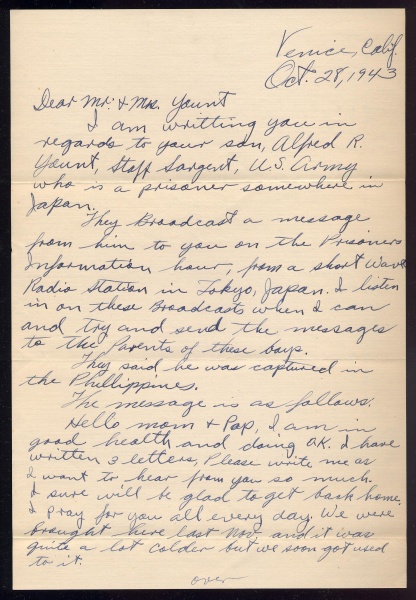 Venice, Calif.
Oct. 28, 1943
Dear Mr. & Mrs. Yount
I am writting you in
regards to your son, Alfred R.
Yount, Staff Sargent, U.S. Army
who is a prisoner somewhere in
Japan.
They Broadcast a message
from him to you on the Prisoners
Information hour, from a short Wave
Radio Station in Tokyo, Japan. I listen
in on these Broadcasts when I can
and try and send the messages
to the Parents of these boys.
They said he was captured in
the Phillippines.
The message is as follows.
Hello mom & Pap, I am in
good health and doing O.K. I have
written 3 letters, Please write me as
I want to hear from you so much.
I sure will be glad to get back home.
I Pray for you all every day. We were
brought here last Nov. and it was
quite a lot colder but we soon got used
to it.
over